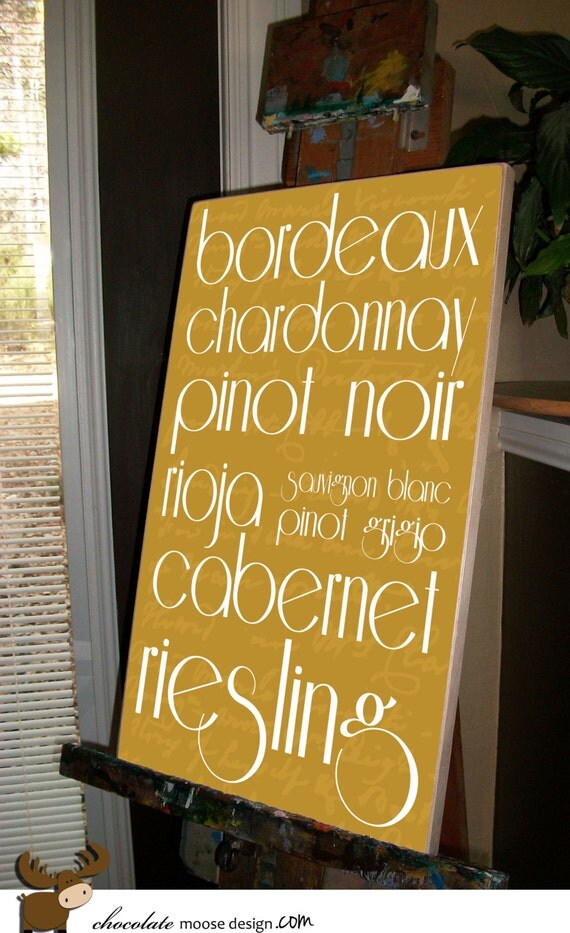 bordeaux
chardonnay
pinot noir
rioja
sauvignon blanc
pinot grigio
cabernet
riesling
chocolate moose design.com